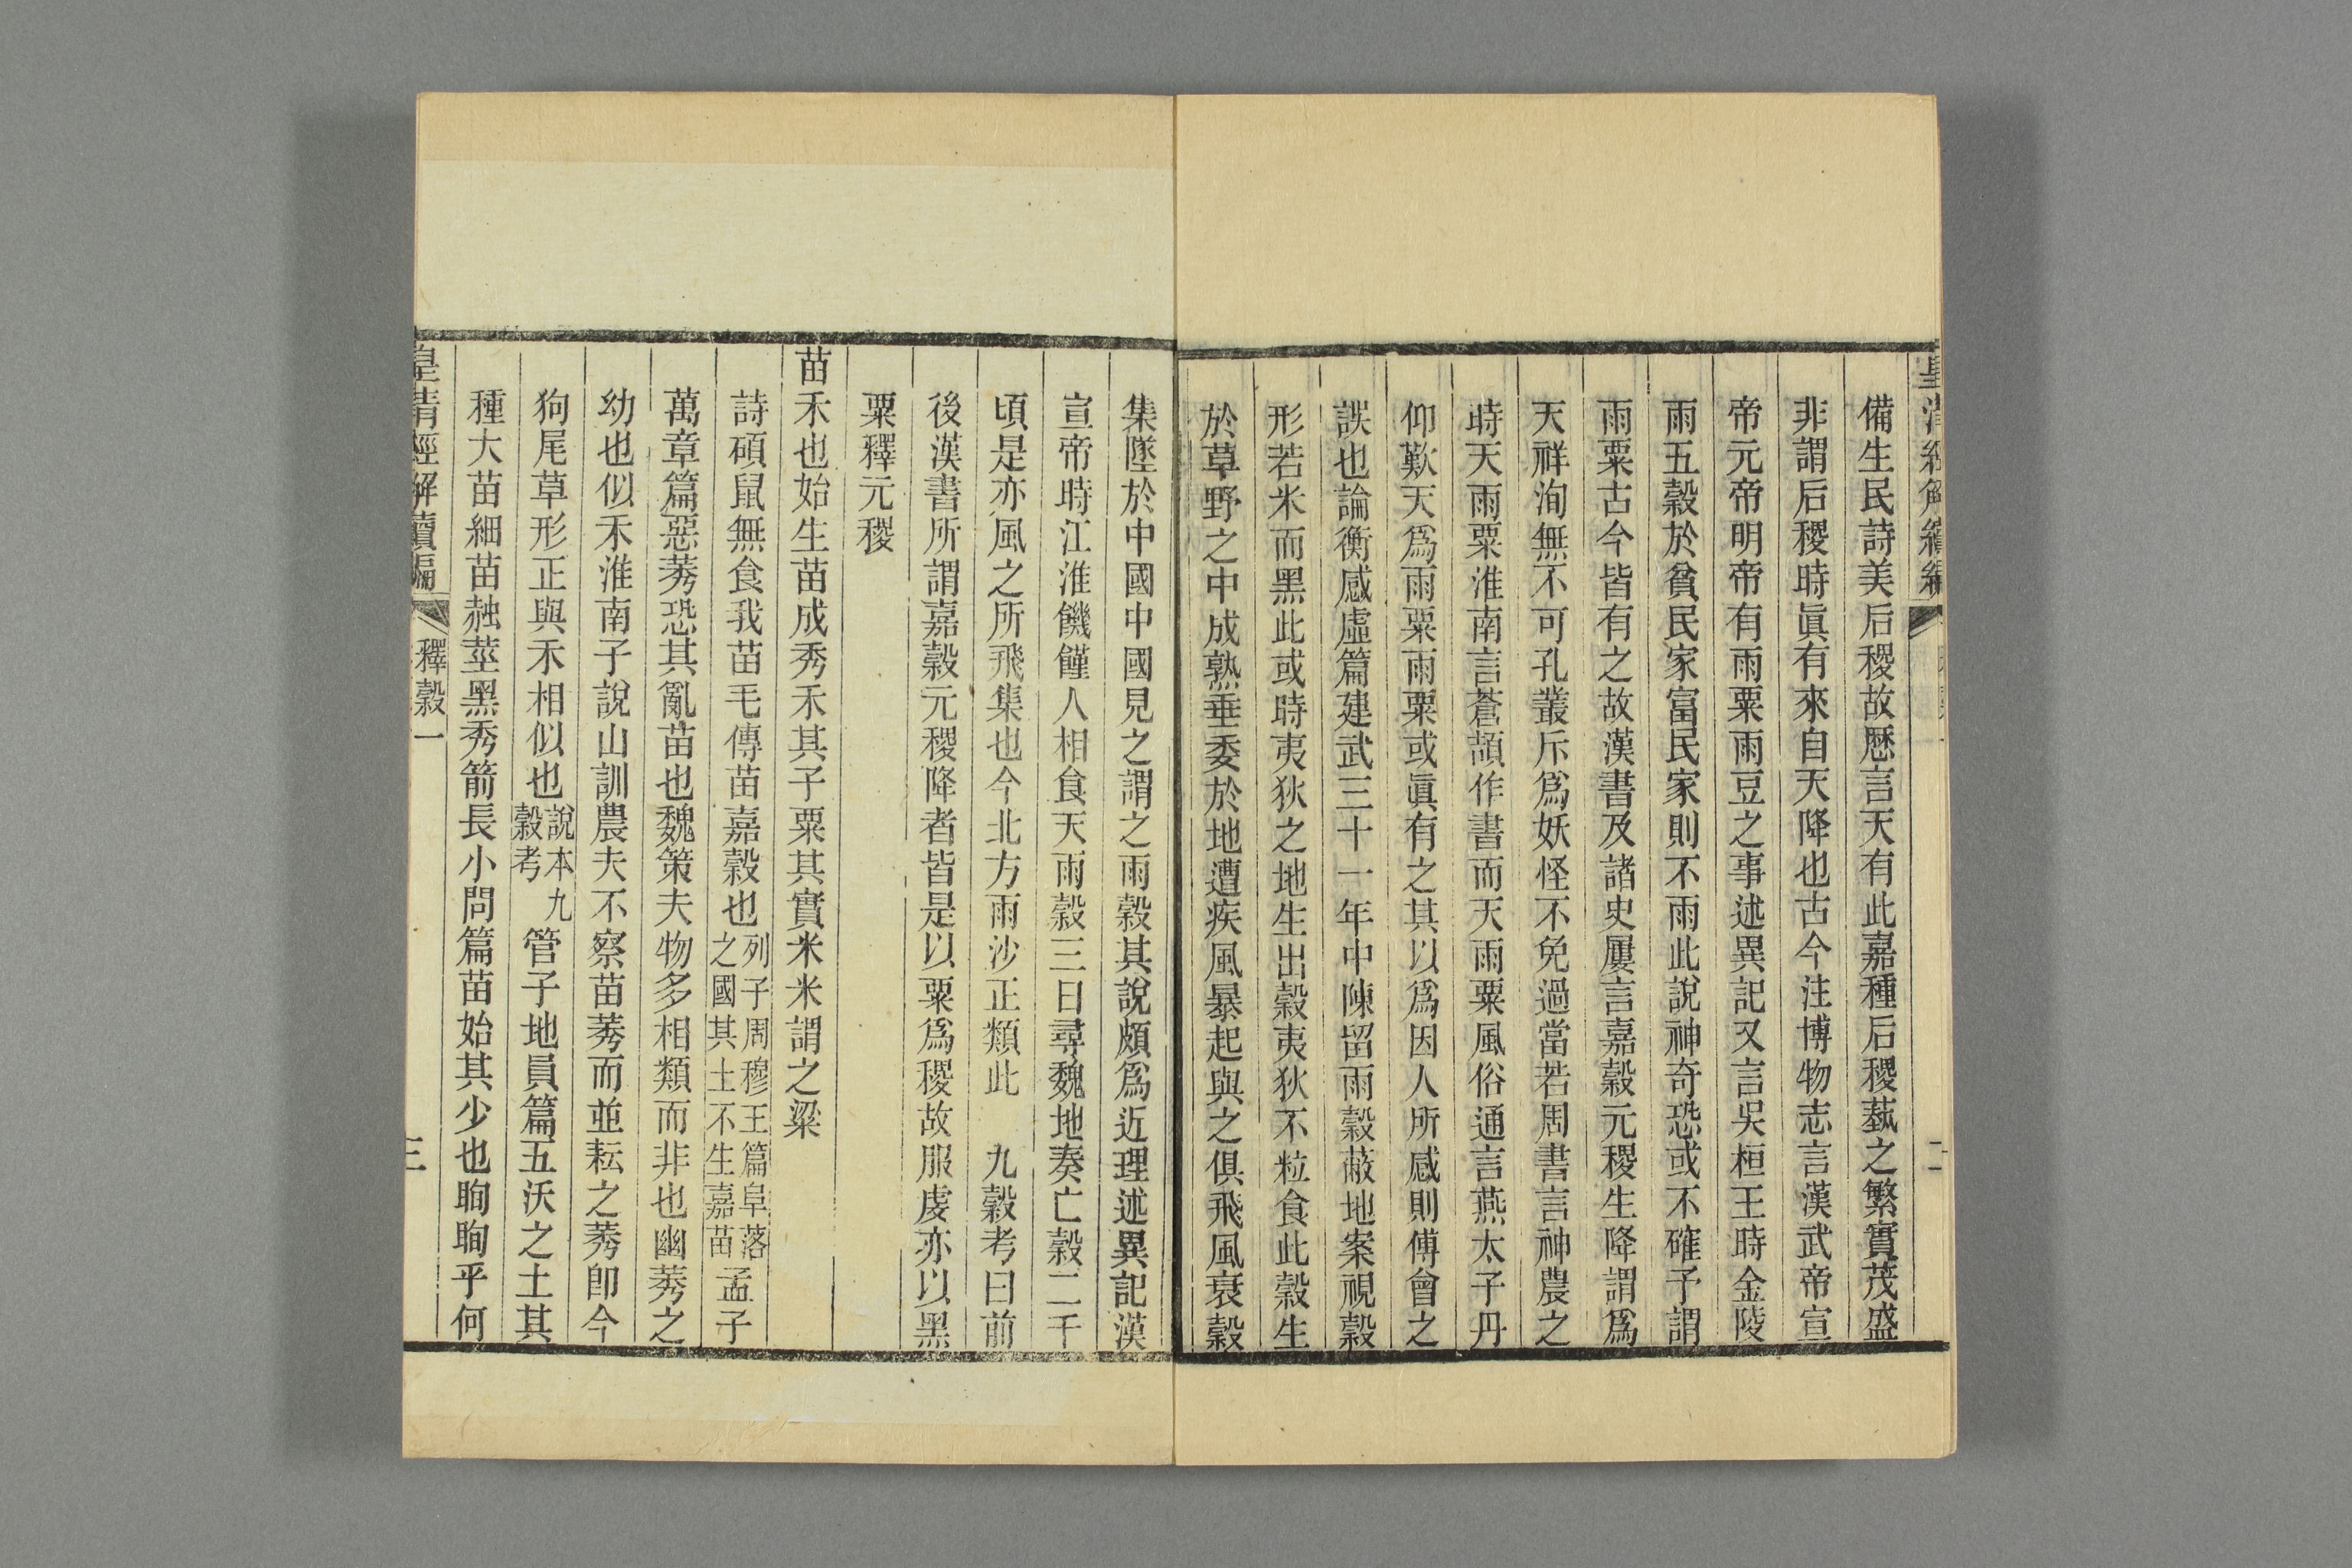 備生民詩美后稷故歷言天有此嘉種后稷蓺之繁實茂盛
非謂后稷時眞有來自天降也古今注博物志言漢武帝宣
帝元帝明帝有雨粟雨豆之事述異記又言吳桓王時金陵
雨五穀於貧民家富民家則不雨此說神奇恐或不確予謂
雨粟古今皆有之故漢書及諸史屢言嘉穀元稷生降謂爲
天祥洵無不可孔叢斥爲妖怪不免過當若周書言神農之
時天雨粟淮南言蒼頡作書而天雨粟風俗通言燕太子丹
仰歎天爲雨粟雨粟或眞有之其以爲因人所感則傅會之
誤也論衡感虛篇建武三十一年中陳留雨穀蔽地案視穀
形若米而黑此或時夷狄之地生出穀夷狄不粒食此穀生
於草野之中成熟垂委於地遭疾風暴起與之俱飛風衰穀
集墜於中國中國見之謂之雨穀其說頗爲近理述異記漢
宣帝時江淮饑饉人相食天雨穀三日尋魏地奏亡穀二千
頃是亦風之所飛集也今北方雨沙正類此 九穀考曰前
後漢書所謂嘉穀元稷降者皆是以粟爲稷故服虔亦以黑
粟釋元稷
苗禾也始生苗成秀禾其子粟其實米米謂之粱
詩碩鼠無食我苗毛傳苗嘉穀也列子周穆王篇阜落之國其土不生嘉苗孟子
萬章篇惡莠恐其亂苗也魏策夫物多相類而非也幽莠之
幼也似禾淮南子說山訓農夫不察苗莠而並耘之莠卽今
狗尾草形正與禾相似也說本九穀考管子地員篇五沃之土其
種大苗細苗赨莖黑秀箭長小問篇苗始其少也眴眴乎何
皇清經解續編 釋穀一 三